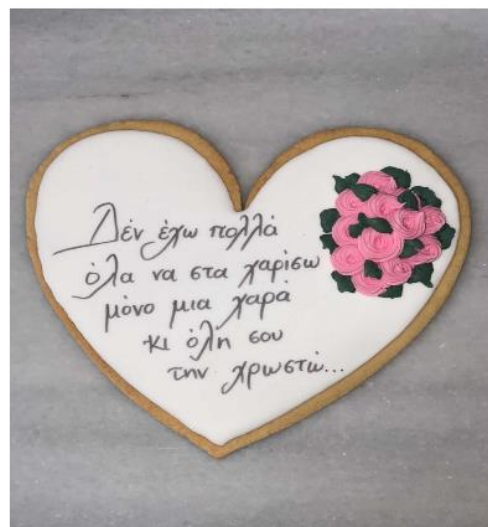 Δέν έχω πολλά
όλα να στα χαρίσω
μόνο μια χαρά
κι όλη σου
την χρωστώ...